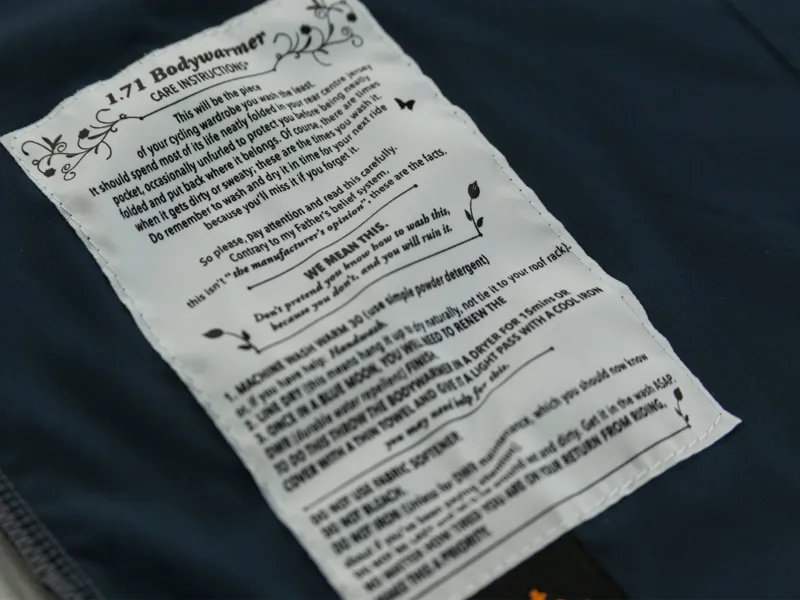 1.71 Bodywarmer
CARE INSTRUCTIONS*
This will be the piece
of your cycling wardrobe you wash the least.
It should spend most of its life neatly folded in your rear centre jersey
pocket, occasionally unfurled to protect you before being neatly
folded and put back where it belongs. Of course, there are times
when it gets dirty or sweaty; these are the times you wash it.
Do remember to wash and dry it in time for your next ride
because you'll miss it if you forget it.
So please, pay attention and read this carefully.
Contrary to my Father's belief system,
this isn't "the manufacturer's opinion", these are the facts.
WE MEAN THIS.
Don't pretend you know how to wash this,
because you don't, and you will ruin it.
1. MACHINE WASH WARM 30 (use simple powder detergent)
or, if you have help, Handwash
2. LINE DRY (this means hang it up to dry naturally, not tie it to your roof rack).
3. ONCE IN A BLUE MOON, YOU WILL NEED TO RENEW THE
DWR (durable water repellent) FINISH.
TO DO THIS THROW THE BODYWARMER IN A DRYER FOR 15mins OR
COVER WITH A THIN TOWEL AND GIVE IT A LIGHT PASS WITH A COOL IRON
you may need help for this.
DO NOT USE FABRIC SOFTENER
DO NOT BLEACH.
DO NOT IRON (unless for DWR maintenance, which you should now know
about if you've been paying attention)
wet and dirty. Get it in the wash ASAP.
NO MATTER HOW TIRED YOU ARE ON YOUR RETURN FROM RIDING,
MAKE THIS A PRIORITY.